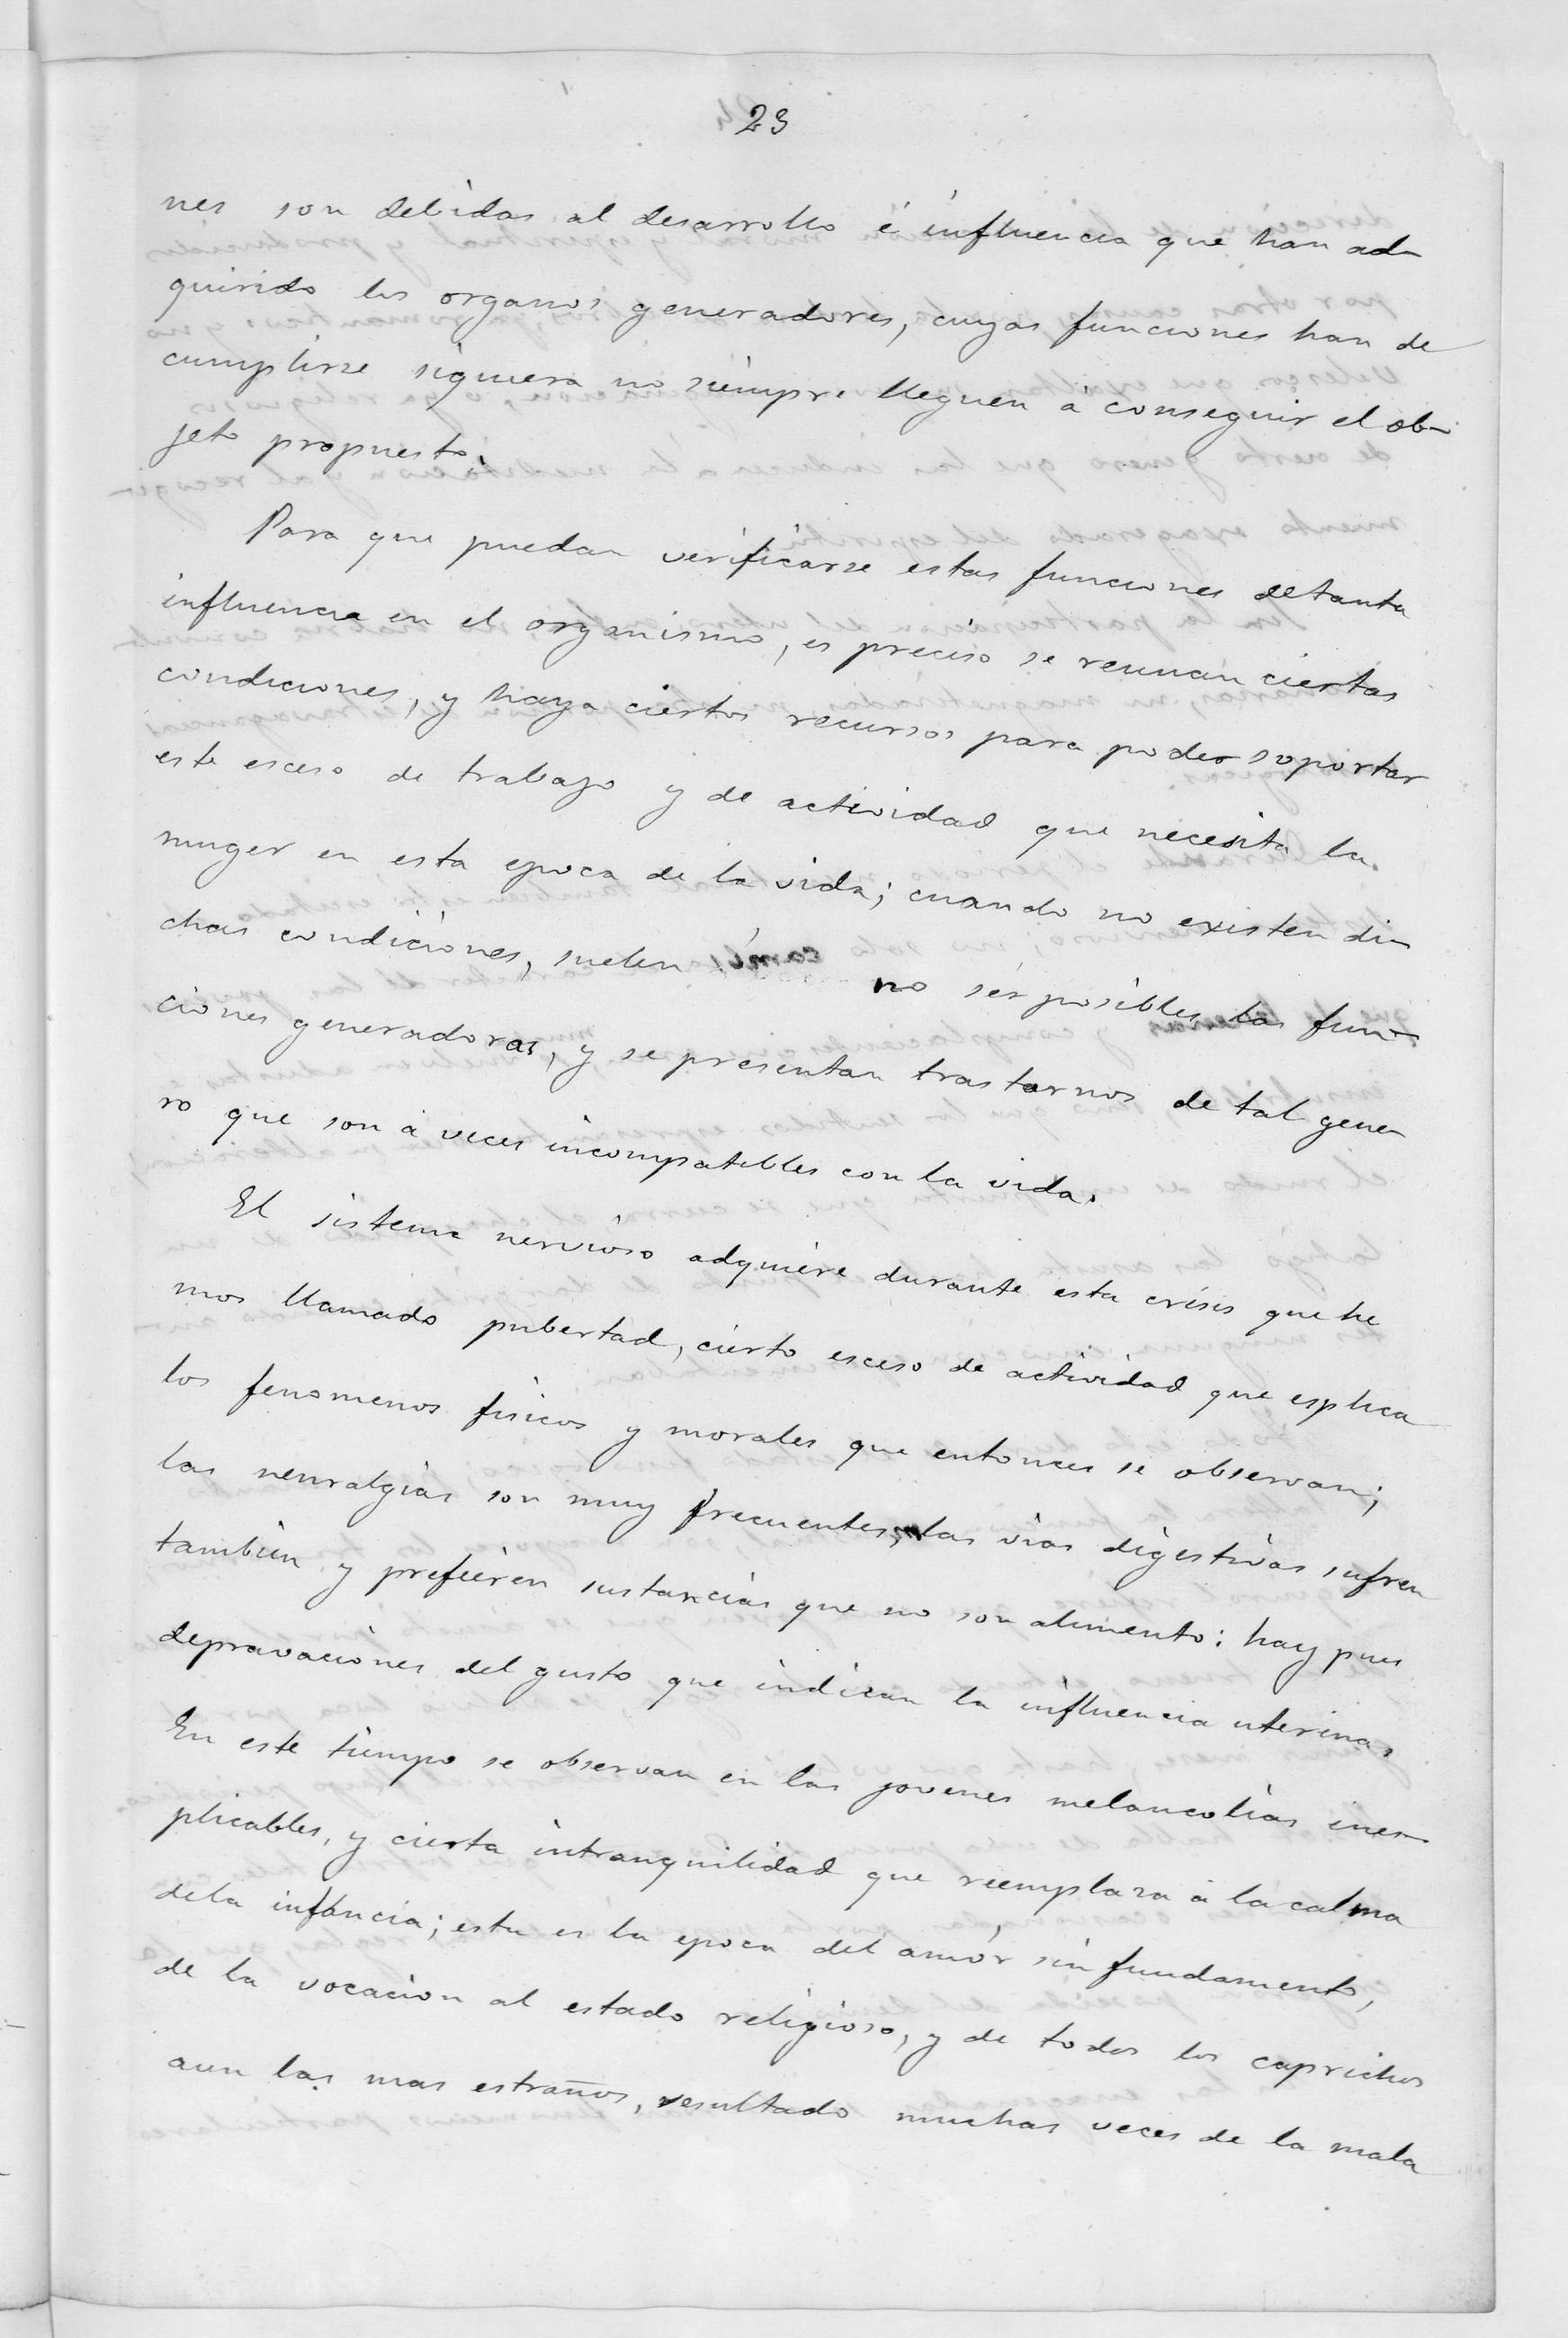 23
nes son debidas al desarrollo é influencia que han ad-
quirido los organos generadores, cuyas funciones han de
cumplirse siquiera no siempre lleguen á conseguir el ob-
jeto propuesto.
Para que puedan verificarse estas funciones de tanta
influencia en el organismo, es preciso se reunan ciertas
condiciones, y haya ciertos recursos para poder soportar
este esceso de trabajo y de actividad que necesita la
muger en esta epoca de la vida; cuando no existen di-
chas condiciones, suelen no ser posibles las fun-
ciones generadoras, y se presentan trastornos de tal gene-
ro que son á veces incompatibles con la vida.
El sistema nervioso adquiere durante esta crisis que he
mos llamado pubertad, cierto esceso de actividad que esplica
los fenomenos fisicos y morales que entonces se observan;
las neuralgias son muy frecuentes, las vias digestivas sufren
tambien y prefieren sustancias que no son alimento: hay pues
depravaciones del gusto que indican la influencia uterina.
En este tiempo se observan en las jovenes melancolias ines-
plicables, y cierta intranquilidad que reemplaza á la calma
de la infancia; esta es la epoca del amór sin fundamento,
de la vocacion al estado religioso, y de todos los caprichos
aun las mas estraños, resultado muchas veces de la mala